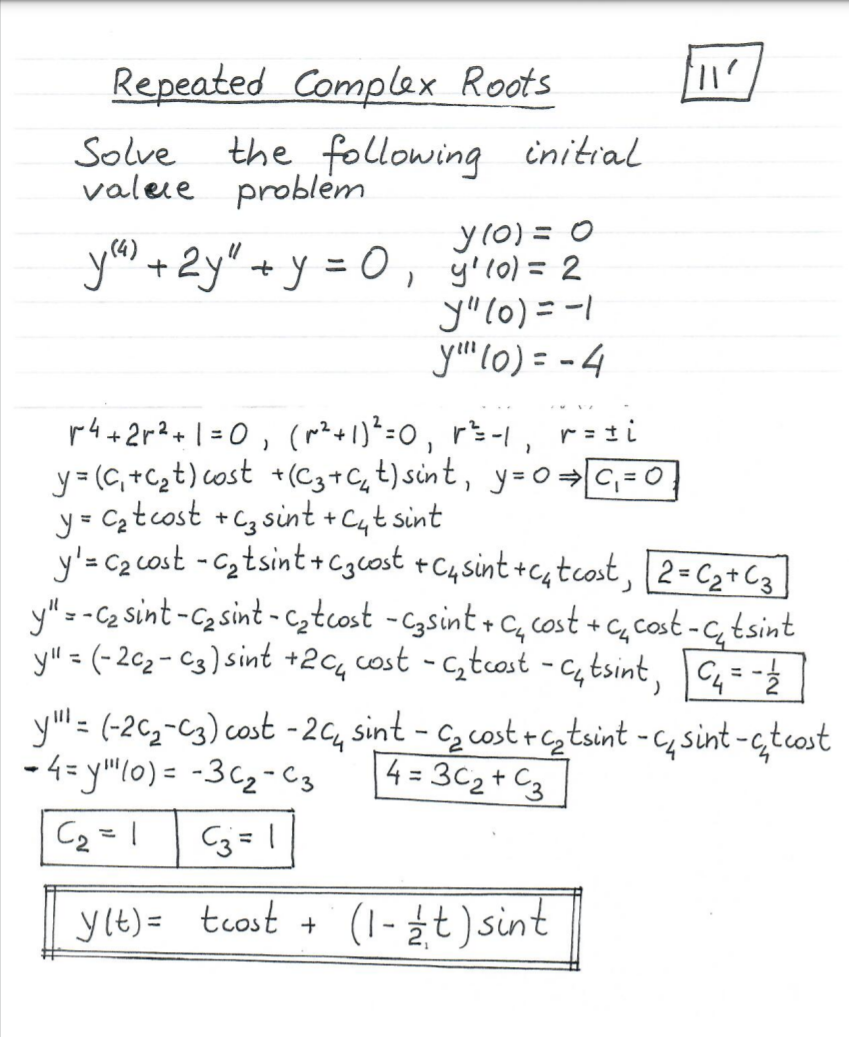 Repeated Complex Roots
11'
Solve the following initial
value problem
y⁽⁴⁾ + 2y'' + y = 0 ,
y(0) = 0
y'(0) = 2
y''(0) = -1
y'''(0) = -4
r⁴ + 2r² + 1 = 0 , (r² + 1)² = 0 , r² = -1 , r = ± i
y = (C₁ + C₂t) cost + (C₃ + C₄t) sint , y = 0 ⇒ C₁ = 0
y = C₂ t cost + C₃ sint + C₄ t sint
y' = C₂ cost - C₂ t sint + C₃ cost + C₄ sint + C₄ t cost , 2 = C₂ + C₃
y'' = -C₂ sint - C₂ sint - C₂ t cost - C₃ sint + C₄ cost + C₄ cost - C₄ t sint
y'' = (-2C₂ - C₃) sint + 2C₄ cost - C₂ t cost - C₄ t sint , C₄ = -½
y''' = (-2C₂ - C₃) cost - 2C₄ sint - C₂ cost + C₂ t sint - C₄ sint - C₄ t cost
-4 = y'''(0) = -3C₂ - C₃ 4 = 3C₂ + C₃
C₂ = 1 C₃ = 1
y(t) = t cost + (1 - ½ t) sint